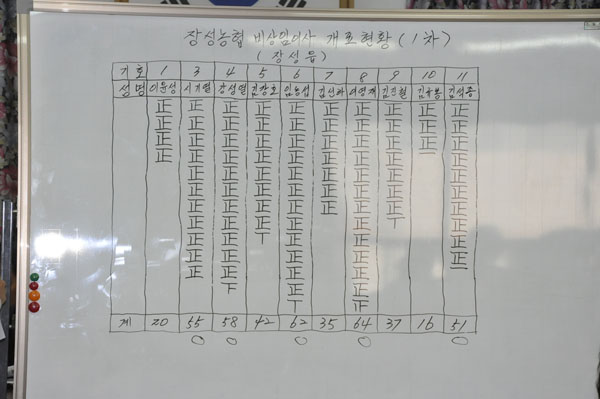 장성농협 비상임이사 개표현황 (1차)
(장성읍)
기호 1 3 4 5 6 7 8 9 10 11
성명 이윤성 시기열 강성열 임동섭 김진현 김석중
正 正 正 正 正 正 正 正 正 正
正 正 正 正 正 正 正 正 正 正
正 正 正 正 正 正 正 正 正 正
正 正 正 正 正 正 正 正 一 正
正 正 正 正 正 正 正 正
正 正 正 正 正 正 正
正 正 正 正 正 正 正
正 正 正 正 正 丅 正
正 正 丅 正 正 正
正 正 正 正 正
正 正 正 正 一
丅 正 正
丅 正
계 20 55 58 42 62 35 64 37 16 51
○ ○ ○ ○ ○